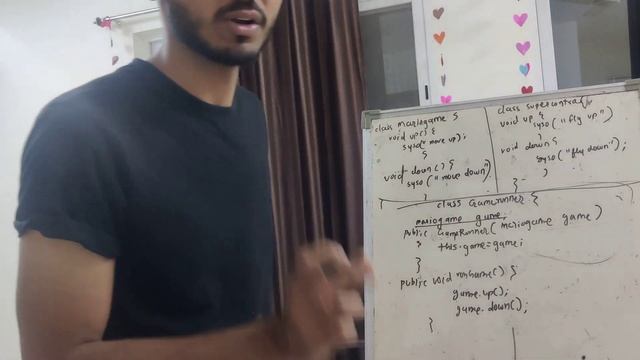 class mariogame {
void up() {
syso("move up);
}
void down() {
syso("move down")
}
class supercontra
void up {
syso("fly up")
}
void down {
syso("fly down");
}
}
class GameRunner {
mariogame game;
public GameRunner(mariogame game)
} this.game=game;
}
public void rungame() {
game.up();
game.down();
}